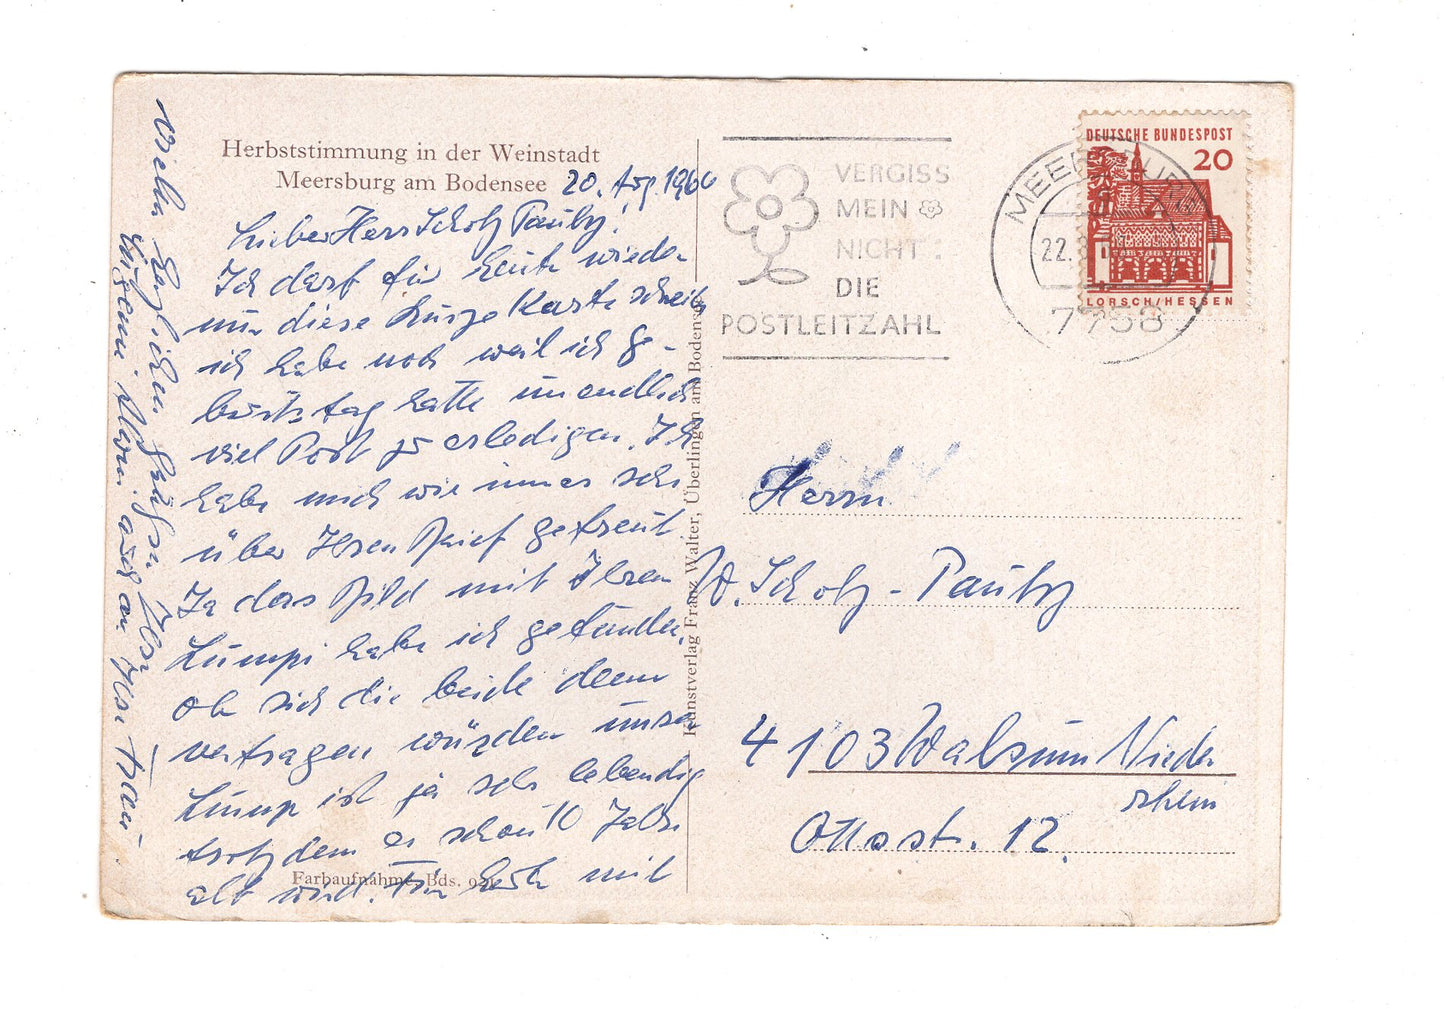 Herbststimmung in der Weinstadt
Meersburg am Bodensee
20. Aug. 1966
Lieber Herr Scholz Pauly!
Ich darf für heute wieder
nur diese kurze Karte schreib
ich habe noch weil ich ge-
burtstag hatte unendlich
viel Post zu erledigen. Ich
habe mich wie immer sehr
über Ihren Brief gefreut
Ja das Bild mit Ihren
Lumpi habe ich gefunden.
ob sich die beide denn
vertragen würden unser
Lump ist ja sehr lebendig
trotzdem er schon 10 Jahre
alt wird. Für heute mit
vielen herzlichen Grüßen Ihr
auch an Ihre Frau
Farbaufnahme Bds.
Kunstverlag Franz Walter, Überlingen am Bodensee
VERGISS
MEIN
NICHT
DIE
POSTLEITZAHL
MEERSBURG
22.8
7758
DEUTSCHE BUNDESPOST
20
LORSCH/HESSEN
Herrn
W. Scholz-Pauly
4103 Walsum Nieder
rhein
Ottostr. 12.